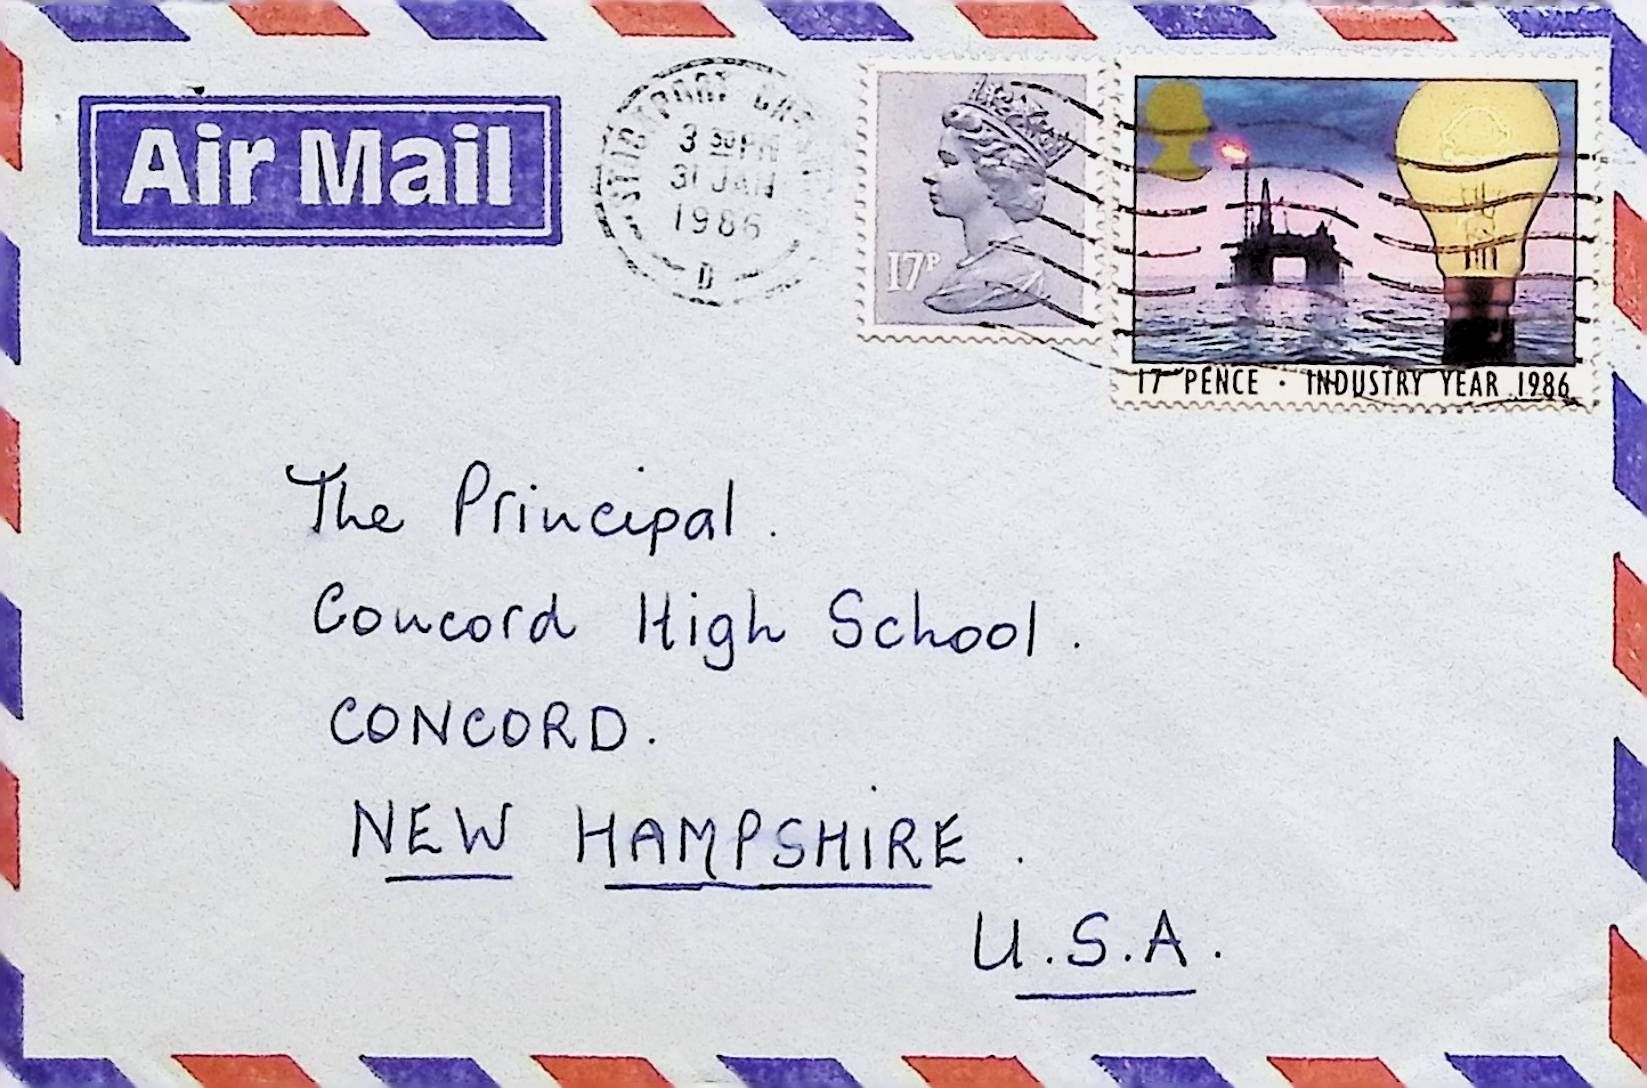 Air Mail
3 30 PM
31 JAN
1986
D
17P
17 PENCE · INDUSTRY YEAR 1986
The Principal.
Concord High School.
CONCORD.
NEW HAMPSHIRE.
U.S.A.